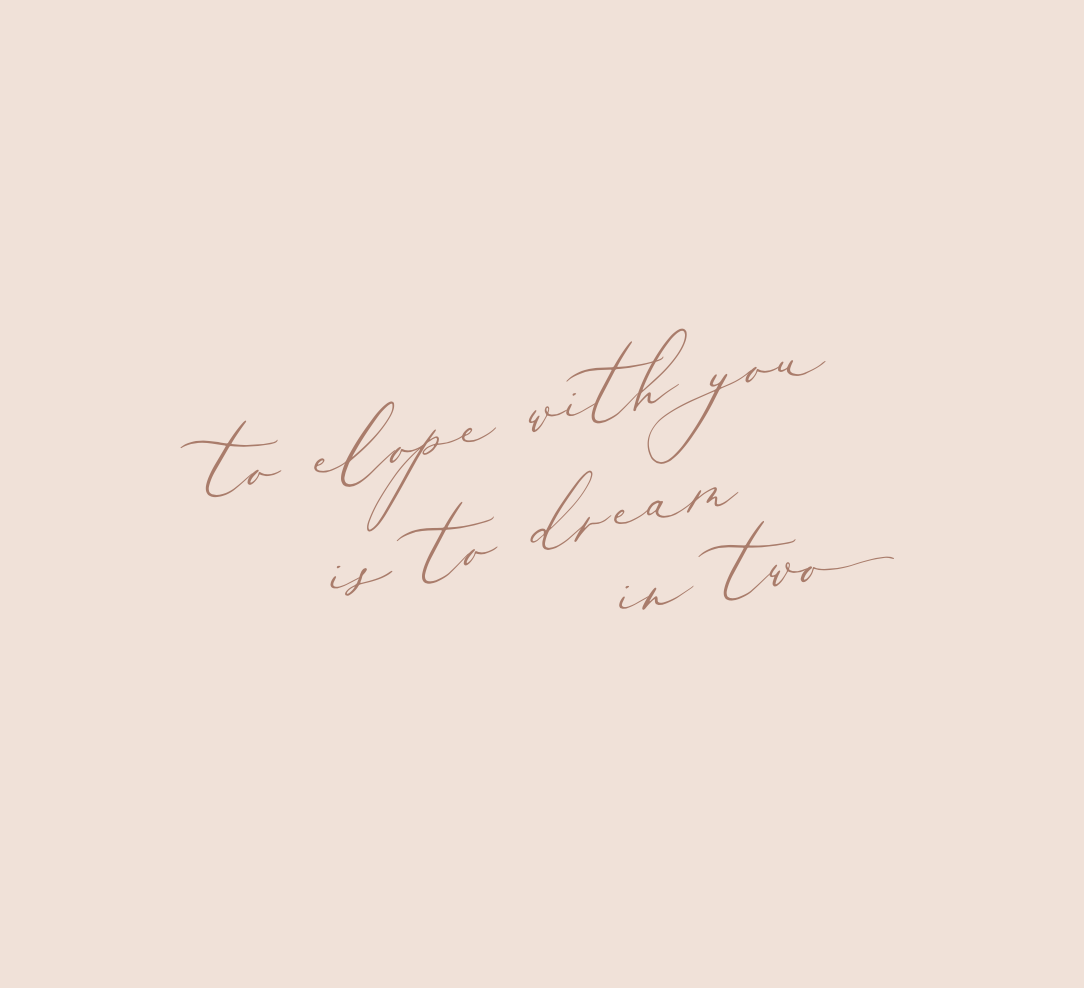 to elope with you
is to dream
in two